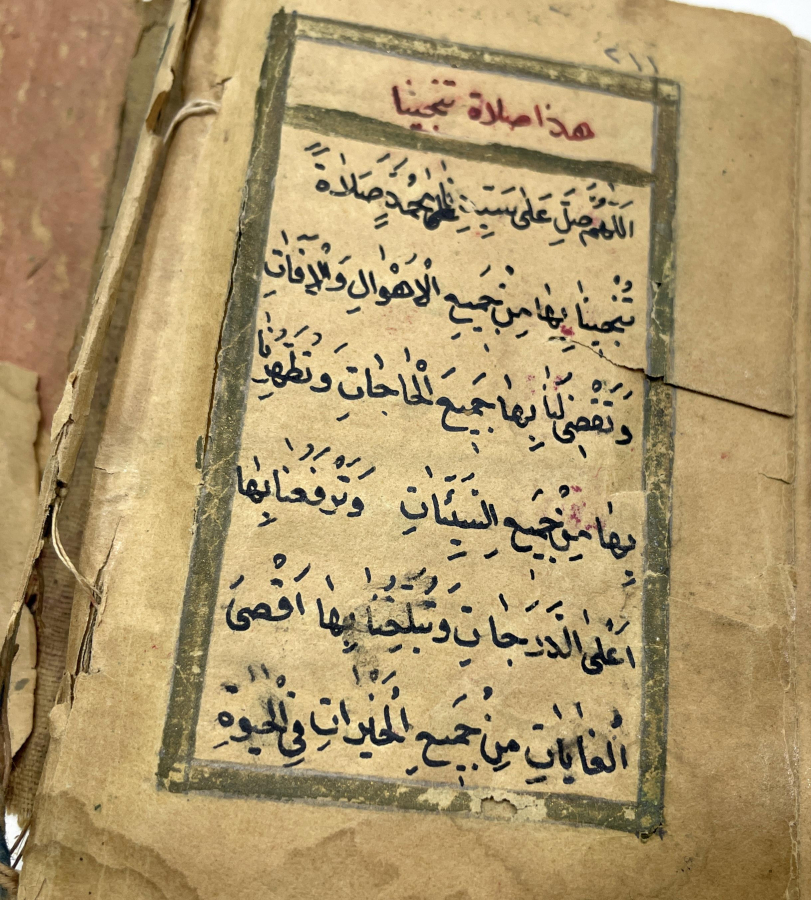 ٢١١
هذا صلاة تنجينا
اَللّٰهُمَّ صَلِّ عَلٰى سَيِّدِنَا مُحَمَّدٍ صَلَاةً
تُنْجِينَا بِهَا مِنْ جَمِيعِ الْاَهْوَالِ وَالْاٰفَاتِ
وَتَقْضِى لَنَا بِهَا جَمِيعَ الْحَاجَاتِ وَتُطَهِّرُنَا
بِهَا مِنْ جَمِيعِ السَّيِّئَاتِ وَتَرْفَعُنَا بِهَا
اَعْلَى الدَّرَجَاتِ وَتُبَلِّغُنَا بِهَا اَقْصَى
الْغَايَاتِ مِنْ جَمِيعِ الْخَيْرَاتِ فِى الْحَيٰوةِ